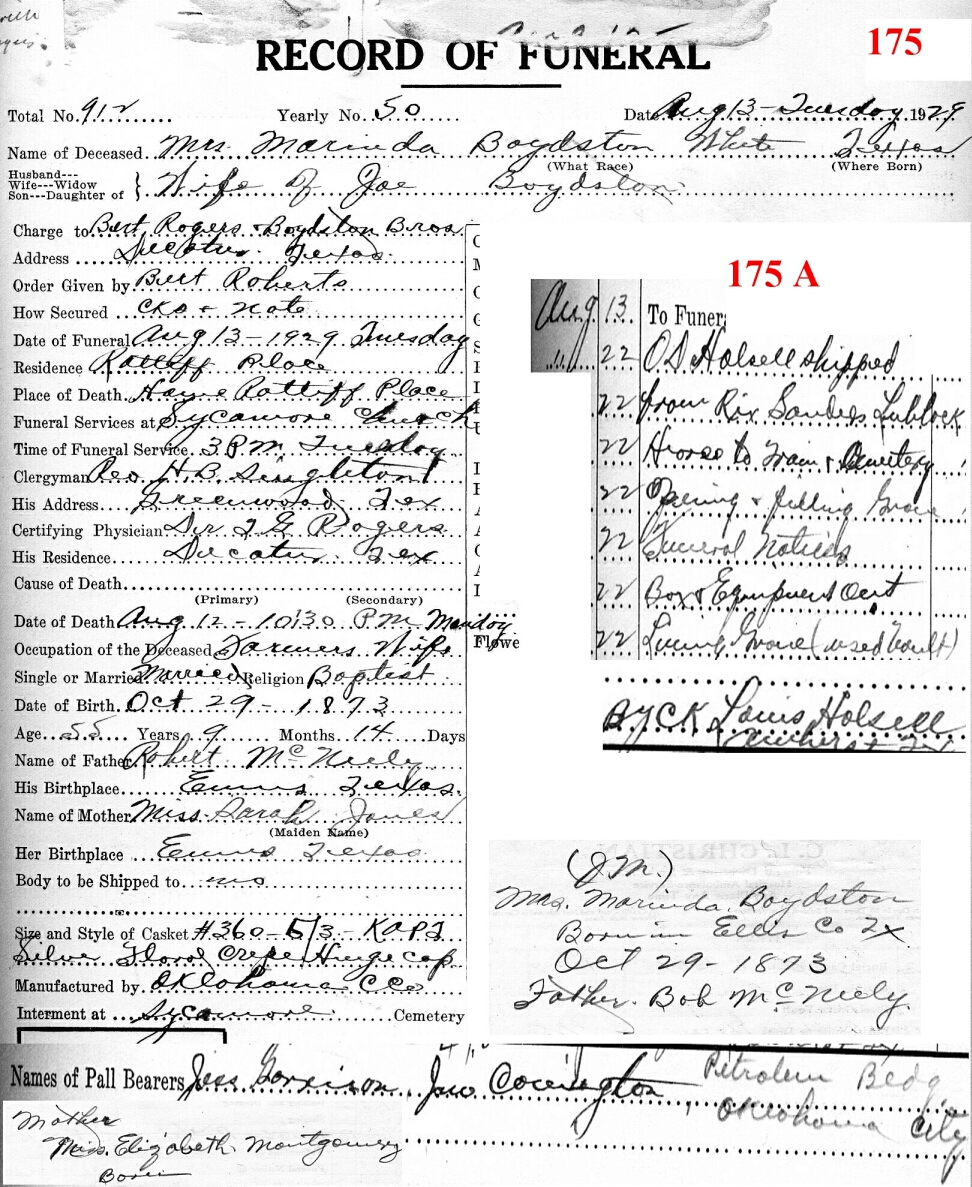 175
RECORD OF FUNERAL
Total No. 912 Yearly No. 50 Date Aug 13 - Tuesday 1929
Name of Deceased Mrs. Marinda Boydston White Texas
(What Race) (Where Born)
Husband---
Wife---Widow
Son---Daughter of } Wife of Joe Boydston
Charge to Bert Rogers & Boydston Bros
Address Decatur Texas
Order Given by Burt Roberts
How Secured Cks + Note
Date of Funeral Aug 13 - 1929 Tuesday
Residence Ratliff Place
Place of Death Ratliff Place
Funeral Services at Sycamore Church
Time of Funeral Service 3 P.M. Tuesday
Clergyman Rev. H.B. Singleton
His Address Greenwood Tex
Certifying Physician Dr. T G Rogers
His Residence Decatur Tex
Cause of Death
(Primary) (Secondary)
Date of Death Aug 12 - 10:30 PM Monday
Flowe
Occupation of the Deceased Farmers Wife
Single or Married Married Religion Baptist
Date of Birth Oct 29 - 1873
Age 55 Years 9 Months 14 Days
Name of Father Robert McNeely
His Birthplace Ennis Texas
Name of Mother Miss Sarah Jones
(Maiden Name)
Her Birthplace Ennis Texas
Body to be Shipped to no
Size and Style of Casket #360 - 5/3 -
Silver Floral Crepe Hinge cap
Manufactured by Oklahoma C Co
Interment at Sycamore Cemetery
175 A
Aug. 13. To Funera
" 22 O S Halsell shipped
22 from Rix Sanders Lubbock
22 Hearse to Train & Cemetery
22 Opening & filling Grave
22 Funeral Notices
22 Box & Equipment Out
22 Lining Grave (used Vault)
By CK Louis Halsell
Amherst Tx
(J.M.)
Mrs. Marinda Boydston
Born in Ellis Co Tx
Oct 29 - 1873
Father. Bob McNeely
Names of Pall Bearers Jess Gorrison Jno Covington Petroleum Bldg
Oklahoma City
Mother
Miss. Elizabeth Montgomery
Born